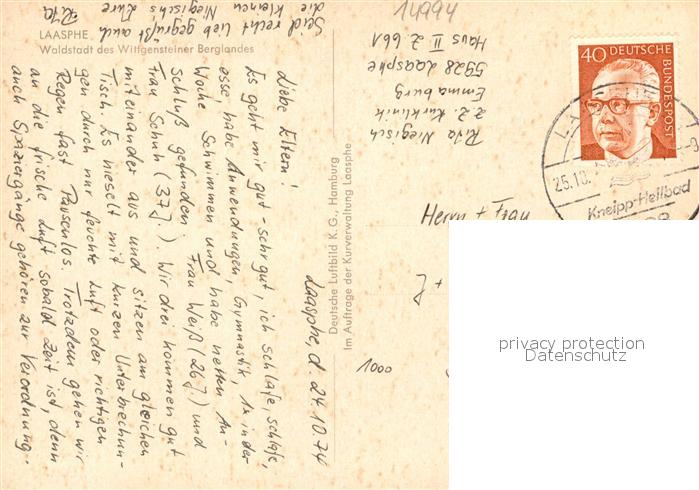 14994
LAASPHE
Waldstadt des Wittgensteiner Berglandes
Laasphe, d. 24.10.74
Liebe Eltern!
Es geht mir gut - sehr gut, ich schlafe, schlafe,
esse, habe Anwendungen, Gymnastik, 1x in der
Woche Schwimmen und habe netten An-
schluß gefunden. Frau Weiß (26 J.) und
Frau Schuh (37 J.). Wir drei kommen gut
miteinander aus und sitzen am gleichen
Tisch. Es nieselt mit kurzen Unterbrechun-
gen durch nur feuchte Luft oder richtigen
Regen fast Pausenlos. Trotzdem gehen wir
an die frische Luft sobald Zeit ist, denn
auch Spaziergänge gehören zur Verordnung.
Seid recht lieb gegrüßt auch
die kleinen Niegisch's Eure
Rita
Deutsche Luftbild K.G., Hamburg
Im Auftrage der Kurverwaltung Laasphe
Rita Niegisch
z.Z. Kurklinik
Emmaburg
5928 Laasphe
Haus II Z 661
40 DEUTSCHE
BUNDESPOST
25.10.
Kneipp-Heilbad
Herrn + Frau
1000
privacy protection
Datenschutz